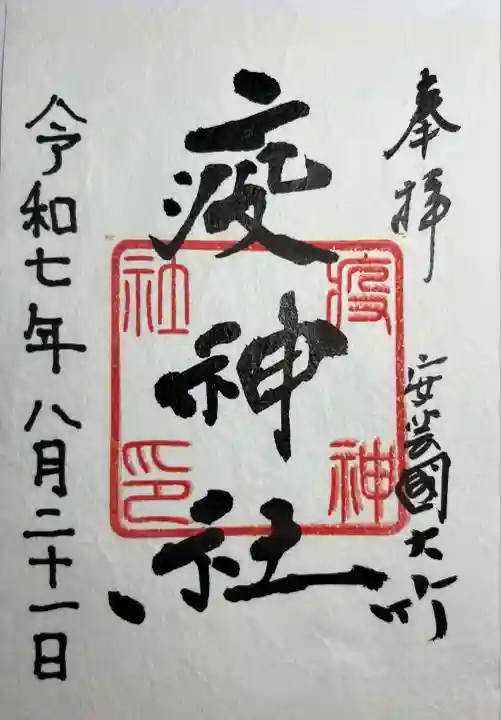 奉拝
安芸國大竹
疫神社
疫神
社印
令和七年八月二十一日